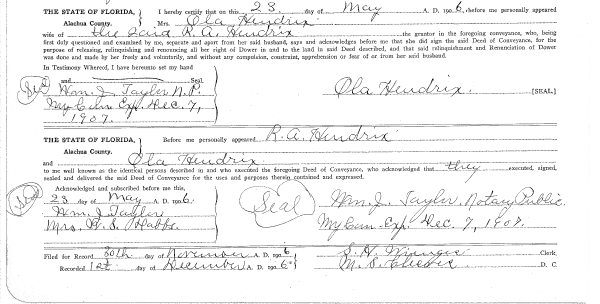 THE STATE OF FLORIDA, } I hereby certify that on this 23 day of May A. D. 1906, before me personally appeared
Alachua County. Mrs. Ola Hendrix
wife of the said R. A. Hendrix the grantor in the foregoing conveyance, who, being
first duly questioned and examined by me, separate and apart from her said husband, says and acknowledges before me that she did sign the said Deed of Conveyance, for the
purpose of releasing, relinquishing and renouncing all her right of Dower in and to the land in said Deed described, and that said relinquishment and Renunciation of Dower
was done and made by her freely and voluntarily, and without any compulsion, constraint, apprehension or fear of or from her said husband.
In Testimony Whereof, I have hereunto set my hand
and Seal.
Seal Wm. J. Tayler N. P. Ola Hendrix. [SEAL]
My Com. Exp. Dec. 7,
1907.
THE STATE OF FLORIDA, } Before me personally appeared R. A. Hendrix
Alachua County.
and Ola Hendrix
to me well known as the identical persons described in and who executed the foregoing Deed of Conveyance, who acknowledged that they executed, signed,
sealed and delivered the said Deed of Conveyance for the uses and purposes therein contained and expressed.
Acknowledged and subscribed before me this,
Seal 23 day of May A. D. 1906. Seal Wm. J. Tayler, Notary Public.
Wm. J. Tayler My Com. Exp. Dec. 7, 1907.
Mrs. W. S. Hobbs
Filed for Record 30th day of November A. D. 1906 S. H. Wienges Clerk,
Recorded 1st day of December A. D. 1906 D. C.